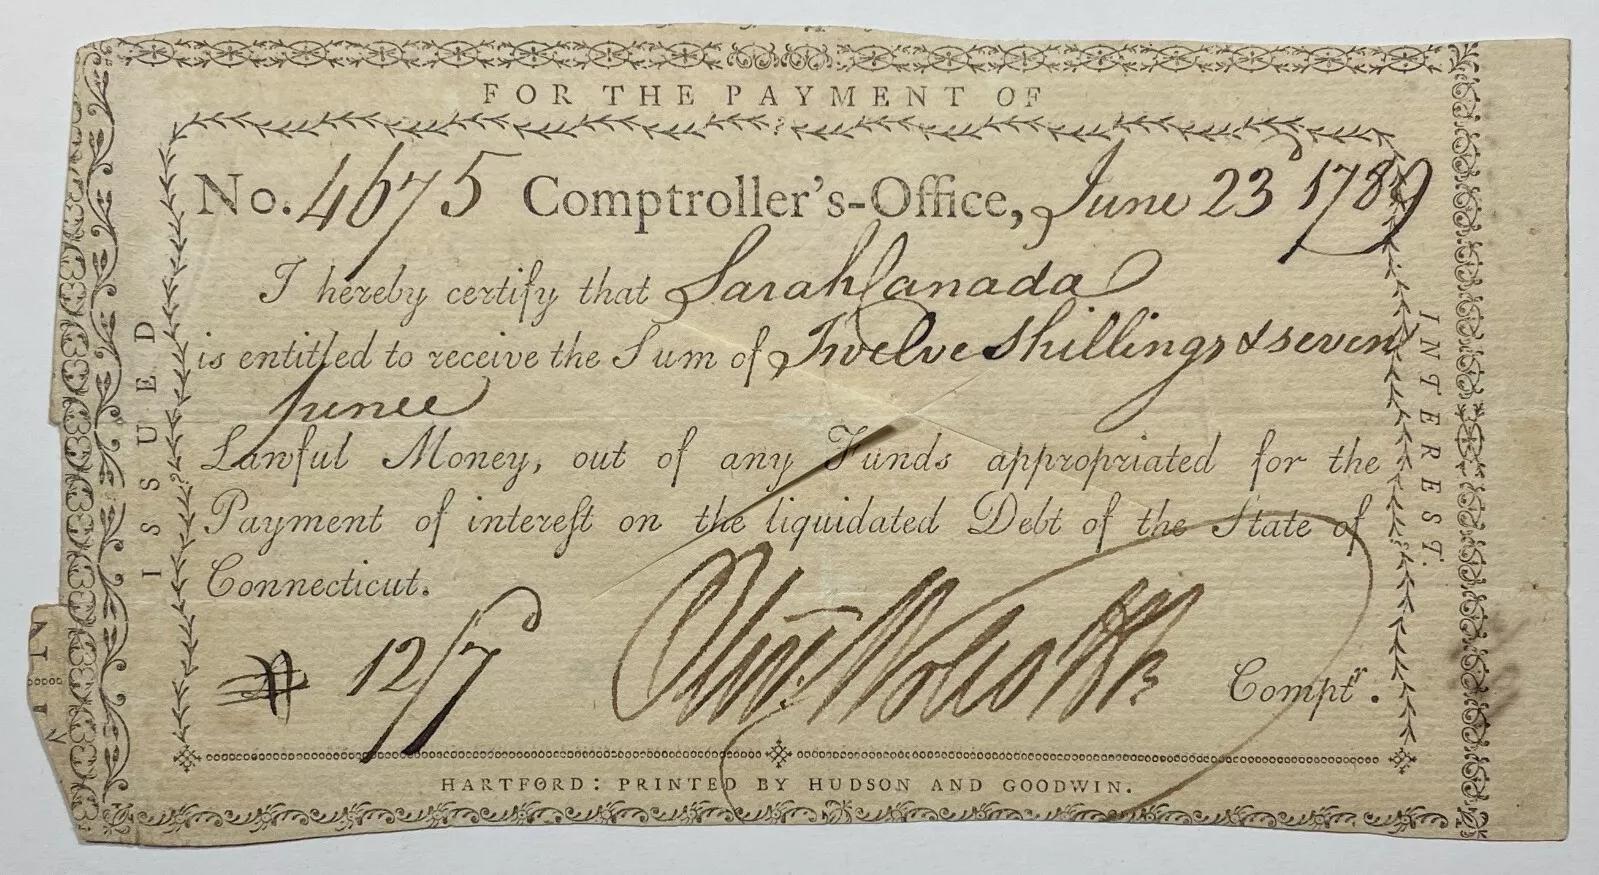 FOR THE PAYMENT OF
No. 4675 Comptroller's-Office, June 23d 1789
I hereby certify that Sarah Canada
is entitled to receive the Sum of Twelve Shillings & seven
pence
Lawful Money, out of any Funds appropriated for the
Payment of intereſt on the liquidated Debt of the State of
Connecticut.
12/7
Olivr. Wolcott Jr Comptr.
HARTFORD: PRINTED BY HUDSON AND GOODWIN.
ISSUED
INTEREST.